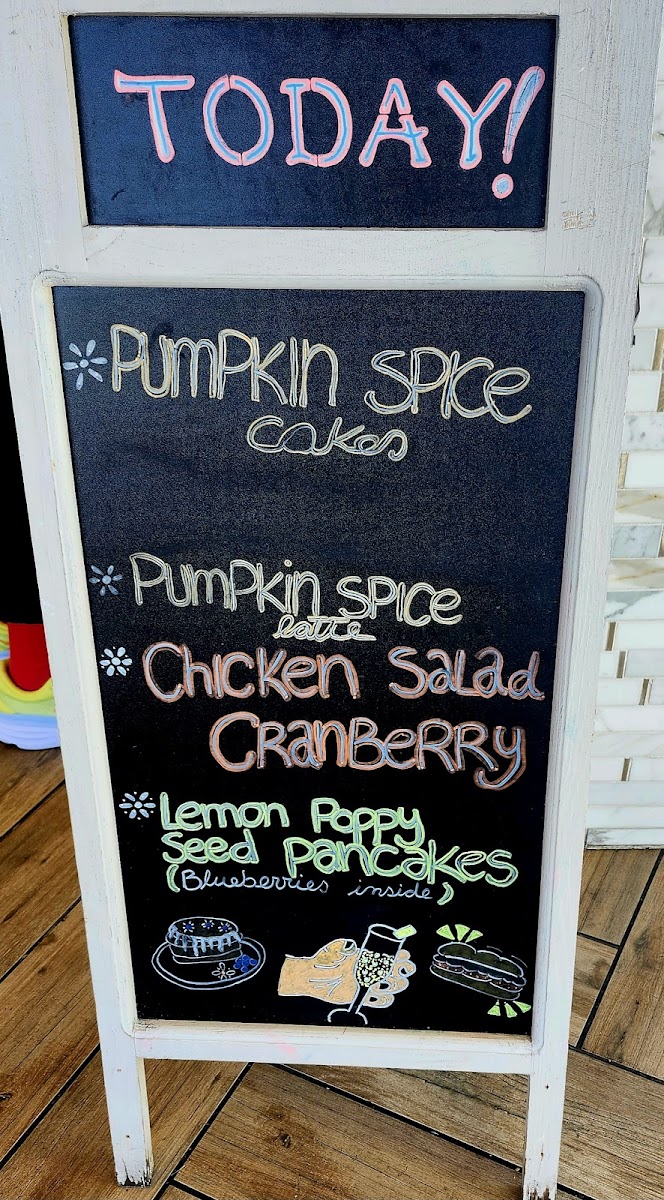 TODAY!
PUMPKIN SPICE
cakes
PUMPKIN SPICE
latte
CHICKEN SALAD
CRANBERRY
Lemon Poppy
Seed PANCAKES
(Blueberries inside)